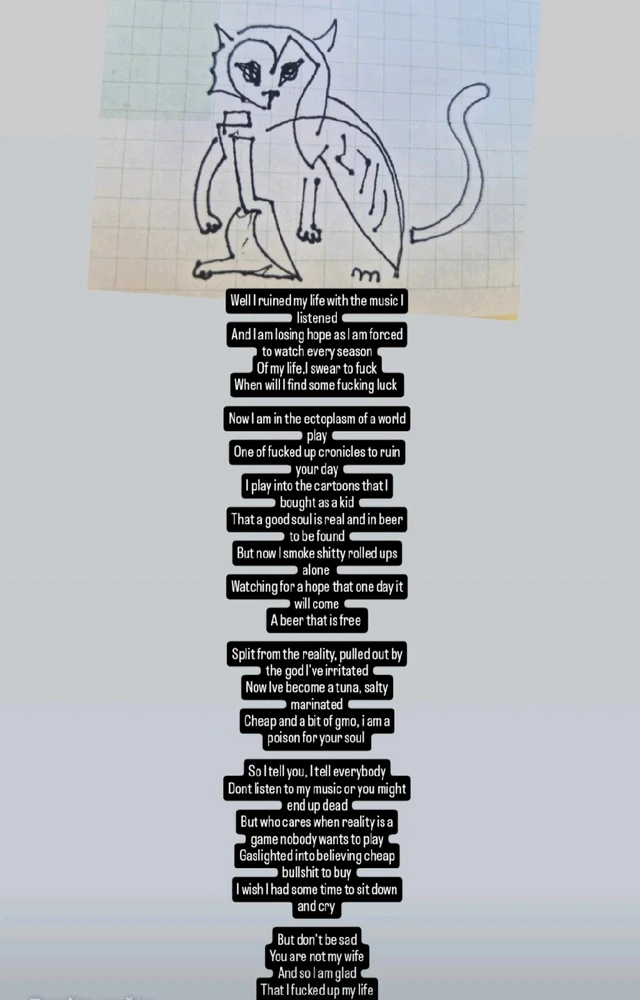 Well I ruined my life with the music I
listened
And I am losing hope as I am forced
to watch every season
Of my life,I swear to fuck
When will I find some fucking luck
Now I am in the ectoplasm of a world
play
One of fucked up cronicles to ruin
your day
I play into the cartoons that I
bought as a kid
That a good soul is real and in beer
to be found
But now I smoke shitty rolled ups
alone
Watching for a hope that one day it
will come
A beer that is free
Split from the reality, pulled out by
the god I've irritated
Now Ive become a tuna, salty
marinated
Cheap and a bit of gmo, i am a
poison for your soul
So I tell you, I tell everybody
Dont listen to my music or you might
end up dead
But who cares when reality is a
game nobody wants to play
Gaslighted into believing cheap
bullshit to buy
I wish I had some time to sit down
and cry
But don't be sad
You are not my wife
And so I am glad
That I fucked up my life